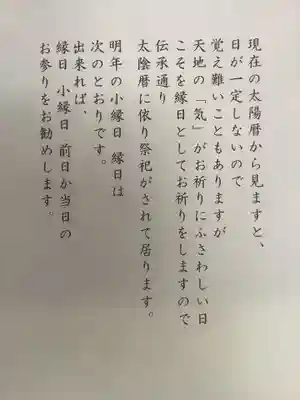 現在の太陽暦から見ますと、
日が一定しないので
覚え難いこともありますが
天地の「気」がお祈りにふさわしい日
こそを縁日としてお祈りをしますので
伝承通り
太陰暦に依り祭祀がされて居ります。
明年の小縁日 縁日は
次のとおりです。
出来れば、
縁日 小縁日 前日か当日の
お参りをお勧めします。